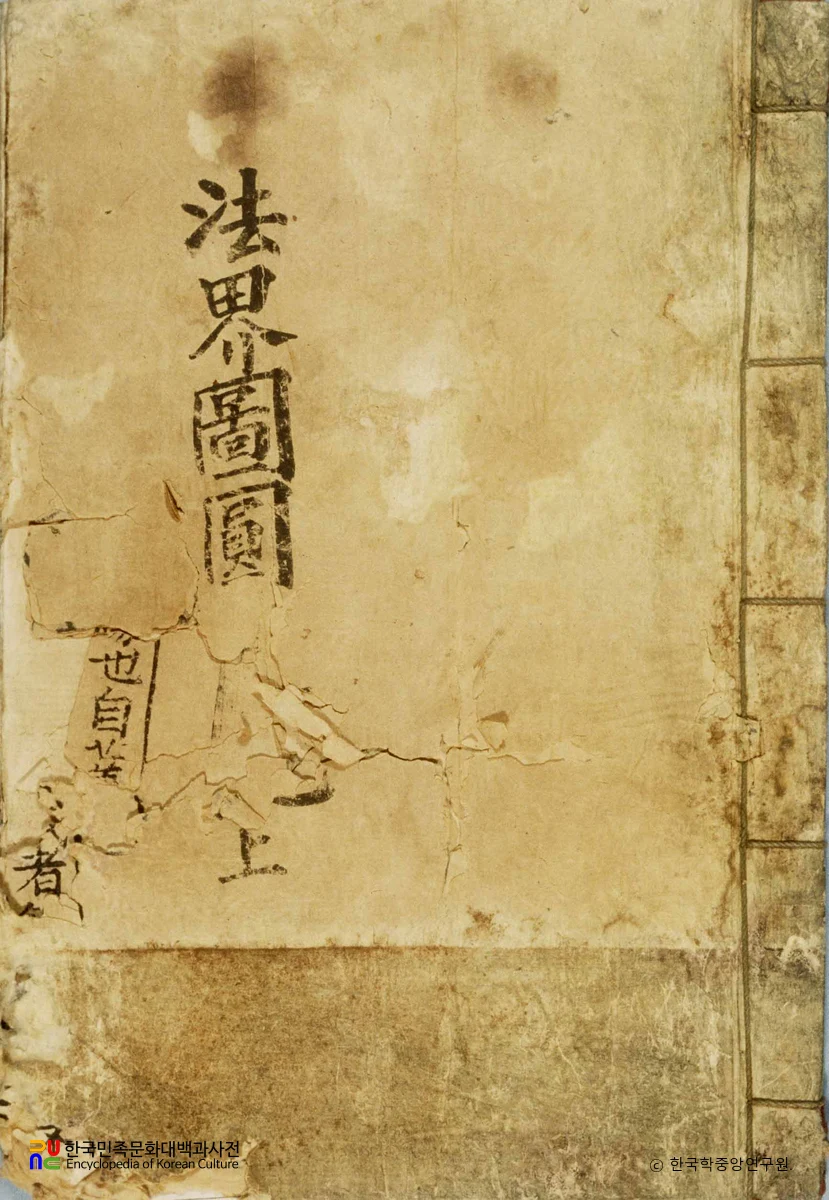 法界圖圓
上
也自
者
한국민족문화대백과사전
Encyclopedia of Korean Culture
© 한국학중앙연구원